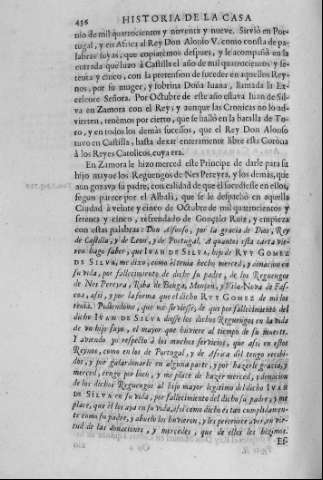 436 HISTORIA DE LA CASA
nio de mil quatrocientos y noventa y nueve. Sirviò en Por-
tugal, y en Africa al Rey Don Alonso V. como consta de pa-
labras suyas, que copiarèmos despues, y le acompañò en la
entrada que hizo à Castilla el año de mil quatrocientos y se-
tenta y cinco, con la pretension de suceder en aquellos Rey-
nos, por su muger, y sobrina Doña Juana, llamada la Ex-
celente Señora. Por Octubre de este año estava Juan de Sil-
va en Zamora con el Rey; y aunque las Cronicas no lo ad-
vierten, tenèmos por cierto, que se hallò en la batalla de To-
ro, y en todos los demàs sucessos, que el Rey Don Alonso
tuvo en Castilla, hasta dexar enteramente libre esta Corona
à los Reyes Catolicos, cuya era.
En Zamora le hizo merced este Principe de darle para su
hijo mayor los Reguengos de Nes Pereyra, y los demàs, que
aun gozava su padre, con calidad de que èl sucediesse en ellos,
segun parece por el Albalà, que se le despachò en aquella
Ciudad à veinte y cinco de Octubre de mil quatrocientos y
setenta y cinco, refrendado de Gonçalo Ruiz, y empieza
con estas palabras: Don Alfonso, por la gracia de Dios, Rey
de Castilla, y de Leon, y de Portugal. A quantos esta carta vie-
ren hago saber, que IVAN DE SILVA, hijo de RUY GOMEZ
DE SILVA, me dixo, como èl tenia hecho merced, y donacion en
su vida, por fallecimiento de dicho su padre, de los Reguengos
de Nes Pereyra, Riba de Bouga,
assi, y por la forma que el dicho RUY GOMEZ de mi los
tenia. Pidiendome, que me sirviesse, de que por fallecimiento del
dicho IVAN DE SILVA diesse los dichos Reguengos en la vida
de vn hijo suyo, el mayor que huviere al tiempo de su muerte.
Y aviendo yo respecto à los muchos servicios, que assi en estos
Reynos, como en los de Portugal, y de Africa del tengo recibi-
dos, y por galardonarle en alguna parte, y por hazerle gracia, y
merced, tengo por bien, y me place de hazer merced, y donacion
de los dichos Reguengos al hijo mayor legitimo del dicho IVAN
DE SILVA en su vida, por fallecimiento del dicho su padre, y me
place, que èl los aya en su vida, assi como dicho es tan cumplidamen-
te como su padre, y abuelo los huvieron, y les pertenece aver, en vir-
tud de las donaciones, y mercedes, que de ellos les hizimos.
Es-